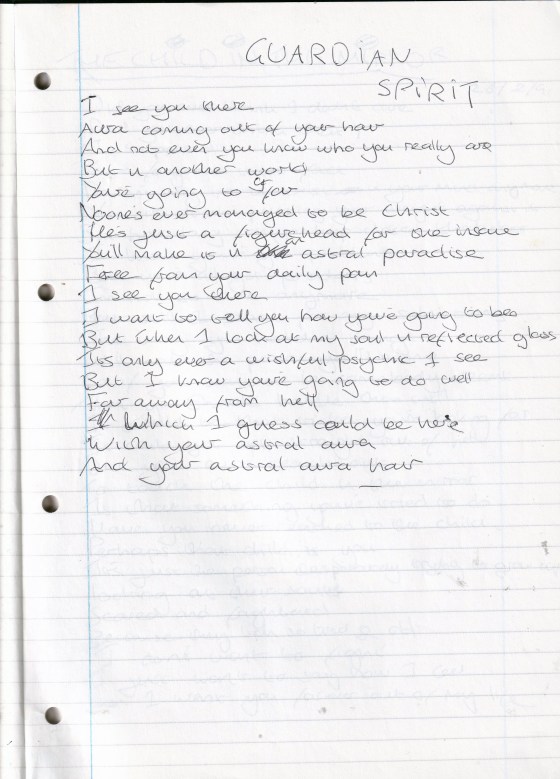 GUARDIAN
SPIRIT
I see you there
Aura coming out of your hair
And not even you know who you really are
But in another world
You're going to go far
Noones ever managed to be Christ
He's just a figurehead for the insane
You'll make it in an astral paradise
Free from your daily pain
I see you there
I want to tell you how you're going to be
But when I look at my soul in reflected glass
Its only ever a wishful psychic I see
But I know you're going to do well
Far away from hell
Which I guess could be here
With your astral aura
And your astral aura hair